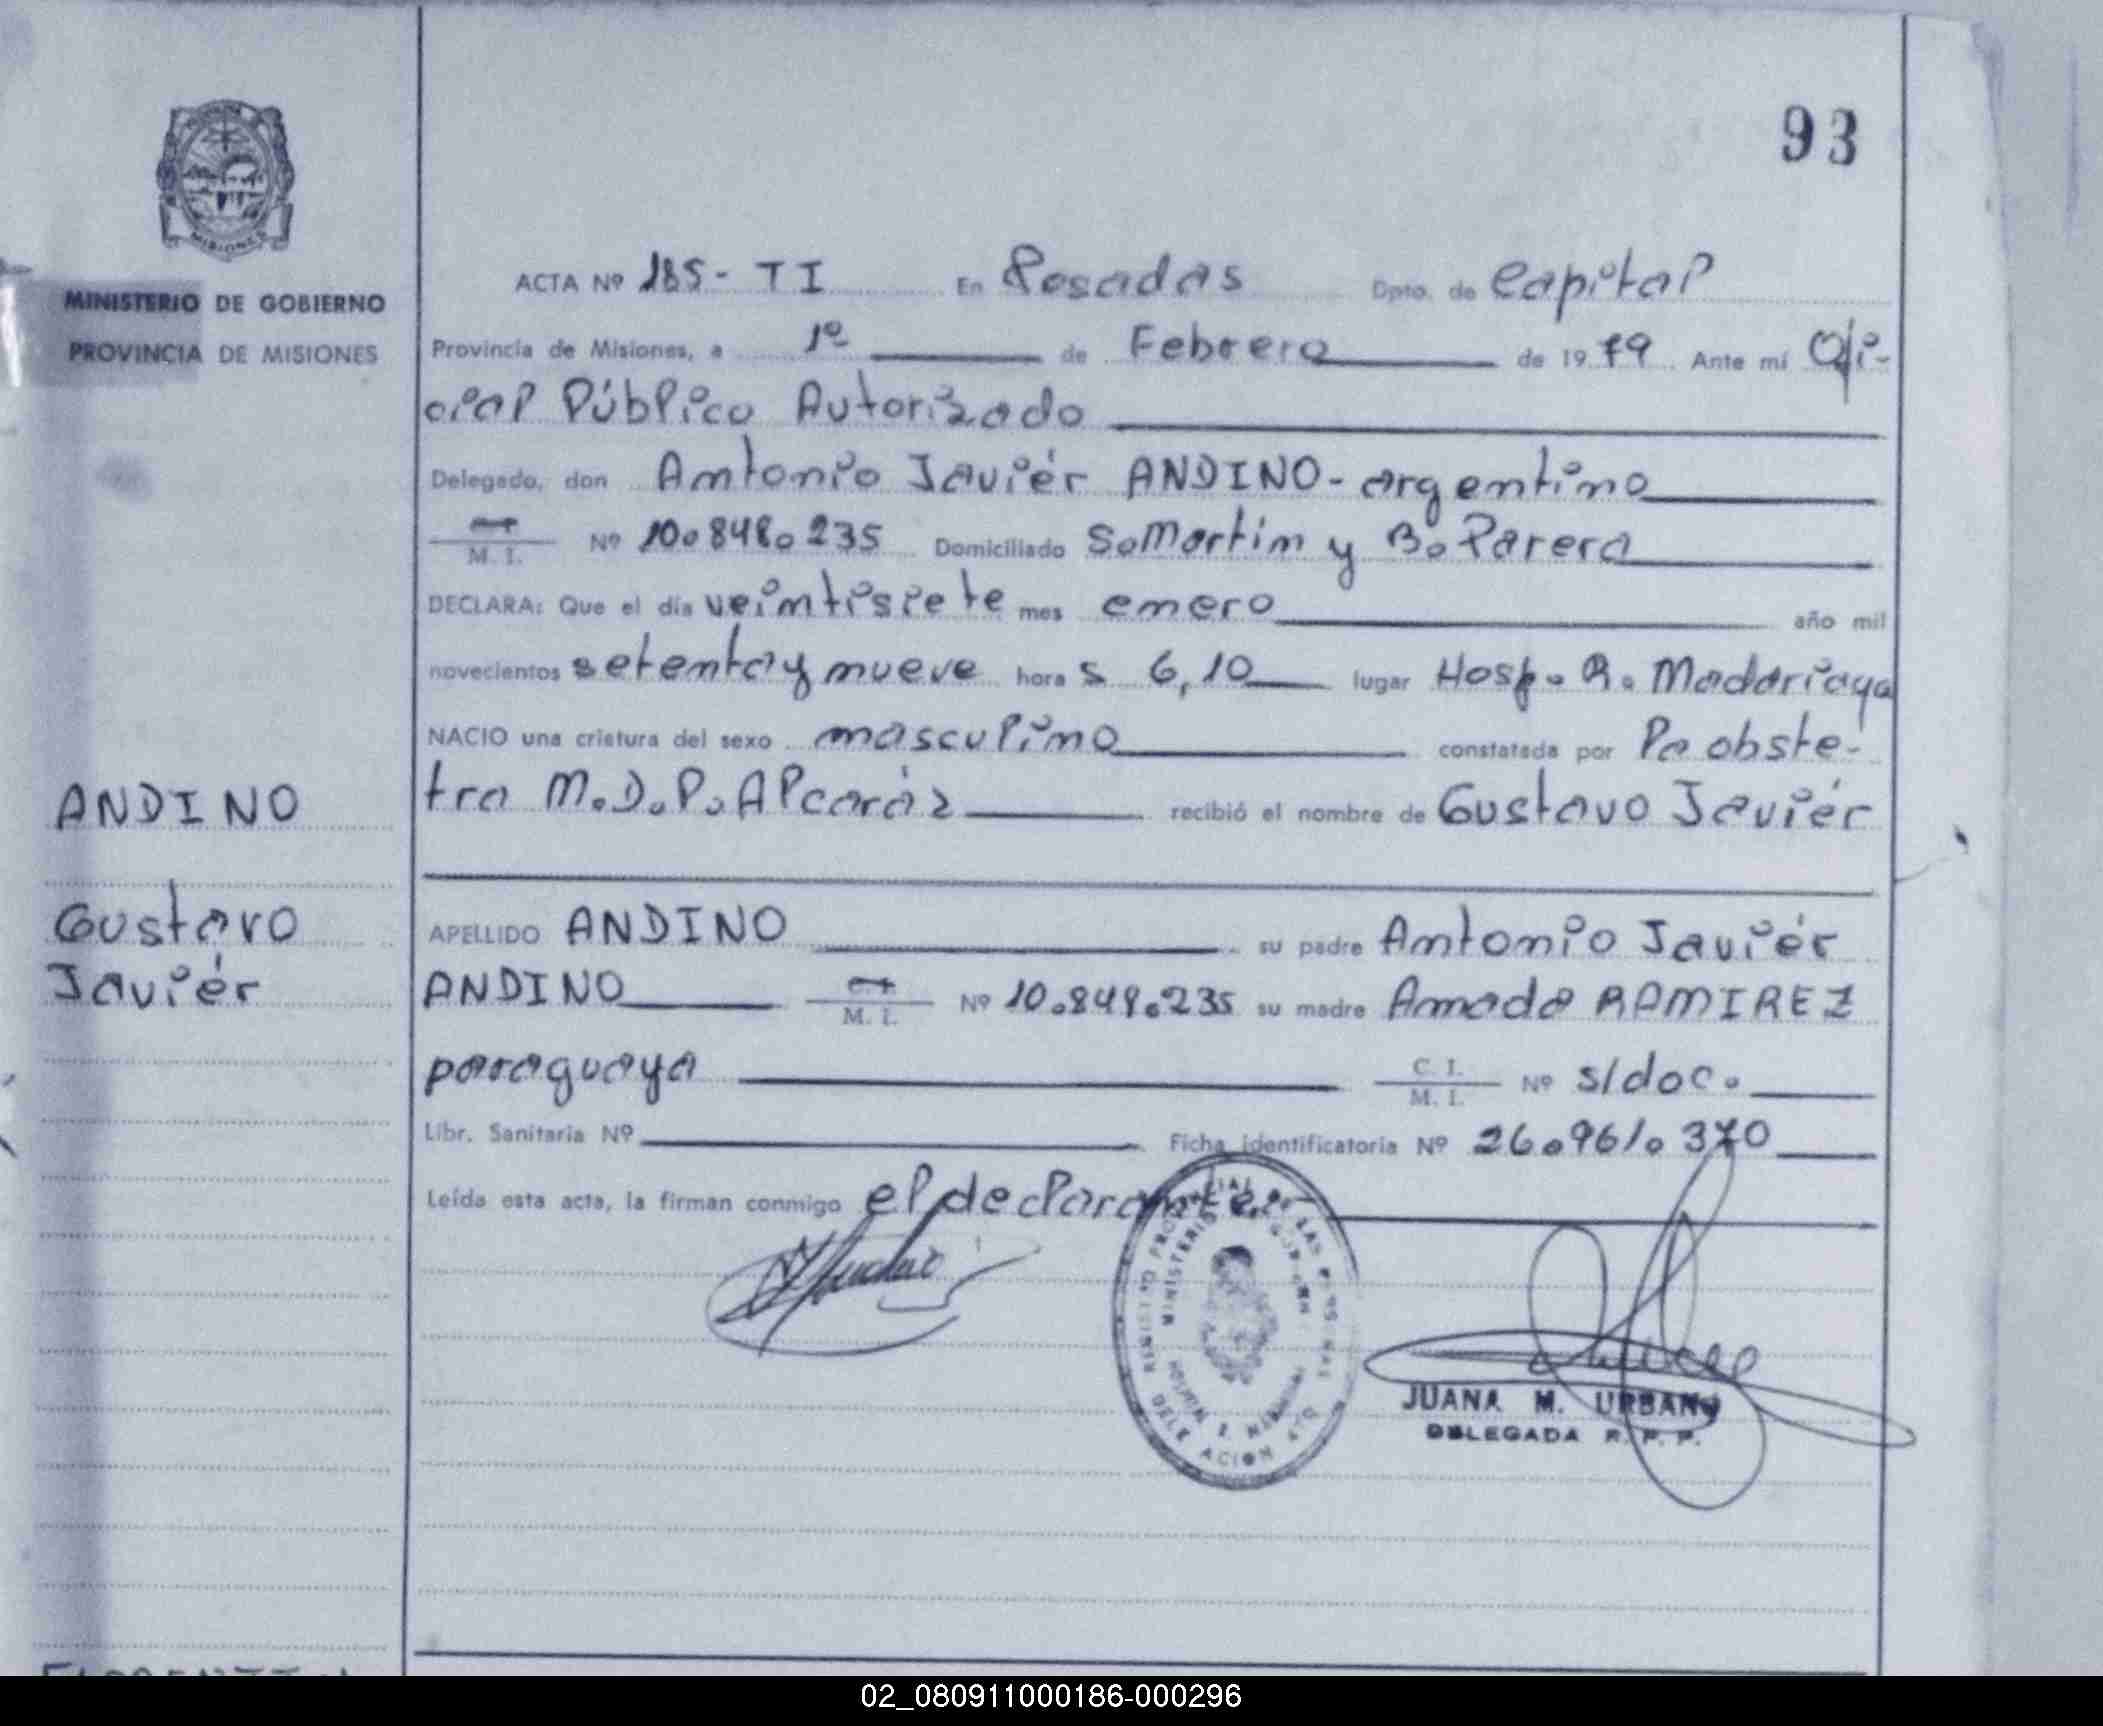 93
MISIONES
MINISTERIO DE GOBIERNO
PROVINCIA DE MISIONES
ACTA Nº 185- TI En Posadas Dpto. de Capital
Provincia de Misiones, a 1º de Febrero de 1979 Ante mí Ofi-
cial Público Autorizado
Delegado, don Antonio Javiér ANDINO- argentino
M. I. Nº 10.848.235 Domiciliado S.Martin y B.Parera
DECLARA: Que el día veintisiete mes enero año mil
novecientos setenta y nueve hora s 6,10 lugar Hosp. R. Madariaga
NACIO una criatura del sexo masculino constatada por la obste-
tra M.D.P. Alcaráz recibió el nombre de Gustavo Javiér
ANDINO
Gustavo
Javiér
APELLIDO ANDINO su padre Antonio Javiér
ANDINO M. I. Nº 10.848.235 su madre Amada RAMIREZ
paraguaya C. I. M. I. Nº s/doc.
Libr. Sanitaria Nº Ficha identificatoria Nº 26.961.370
Leída esta acta, la firman conmigo el declarante.-
JUANA M. URBANO
DELEGADA R. P. P.
02_080911000186-000296